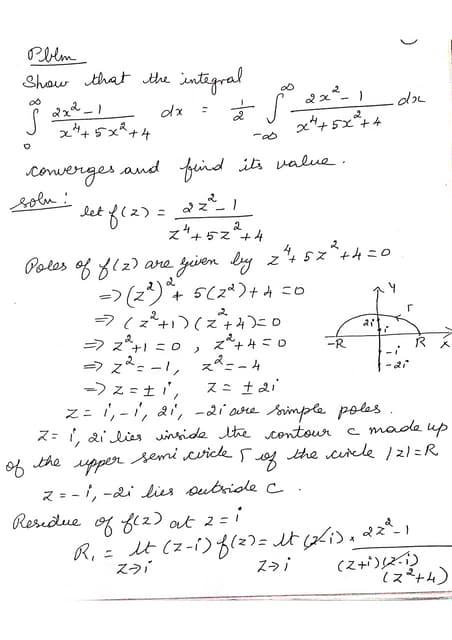 Pblm
Show that the integral
∞∫0 (2x² - 1)/(x⁴ + 5x² + 4) dx = 1/2 ∞∫-∞ (2x² - 1)/(x⁴ + 5x² + 4) dx
converges and find its value.
soln: let f(z) = (2z² - 1)/(z⁴ + 5z² + 4)
Poles of f(z) are given by z⁴ + 5z² + 4 = 0
=> (z²)² + 5(z²) + 4 = 0
=> (z² + 1)(z² + 4) = 0
=> z² + 1 = 0, z² + 4 = 0
=> z² = -1, z² = -4
=> z = ± i, z = ± 2i
y
Γ
2i
i
-R R x
-i
-2i
z = i, -i, 2i, -2i are simple poles.
z = i, 2i lies inside the contour c made up
of the upper semi circle Γ of the circle |z| = R
z = -i, -2i lies outside c.
Residue of f(z) at z = i
R₁ = lt z→i (z-i) f(z) = lt z→i (z-i) × (2z² - 1)/((z+i)(z-i)(z²+4))